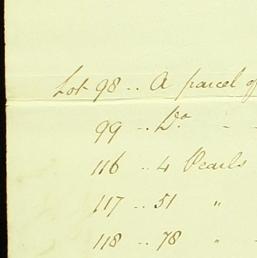 Lot 98 .. A parcel of
99 .. Do - -
116 .. 4 Pearls
117 .. 51 "
118 .. 78 " -